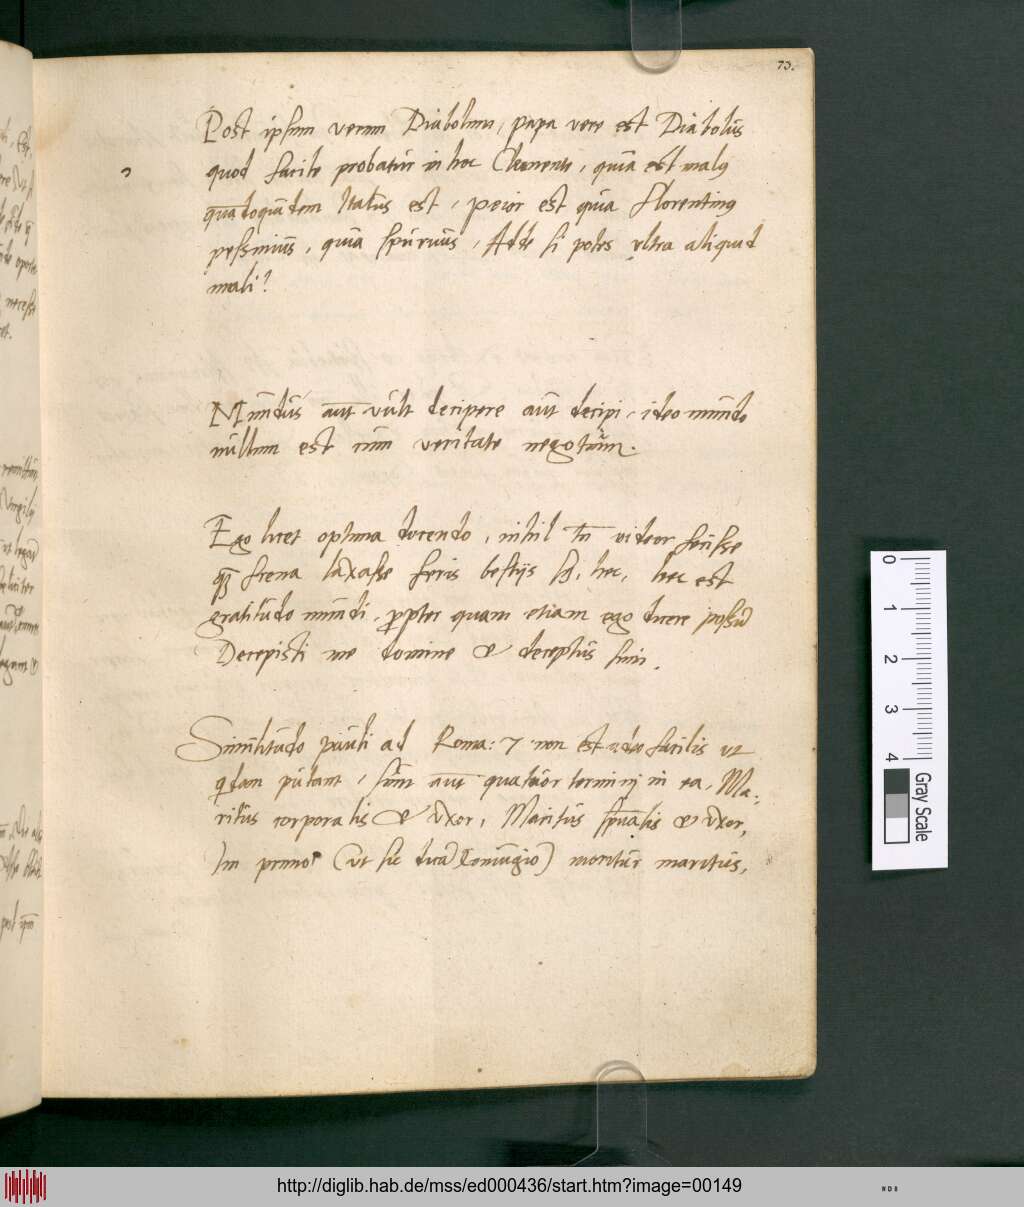 73.
Post ipsum verum Diabolum, papa vere est Diabolus
quod facile probatur in hoc Clemente, quia est malus
quandoquidem Italus est, peior est quia Florentinus
pessimus, quia spurius, Adde si potes vltra aliquid
mali?
Mundus aut vult decipere aut decipi, ideo mundo
nullum est cum veritate negotium.
Ego licet optima docendo, nihil tn videor fecisse
qz frena laxasse feris bestijs sed, hec, hec est
gratitudo mundi, propter quam etiam ego dicere possu
Decepisti me domine et deceptus sum.
Similitudo pauli ad Roma: 7 non est adeo facilis vt
qdam putant, sunt aut quatuor termini in ea, Ma-
ritus corporalis et vxor, Maritus spualis et vxor,
In primo (vt sic dica Coniugio) moritur maritus,
0
1
2
3
4
Gray Scale
http://diglib.hab.de/mss/ed000436/start.htm?image=00149